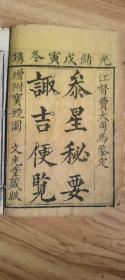 光緒戊寅冬鐫
江督費大司馬鑒定
叅星秘要
諏吉便覽
增附寶鏡圖 文光堂藏版